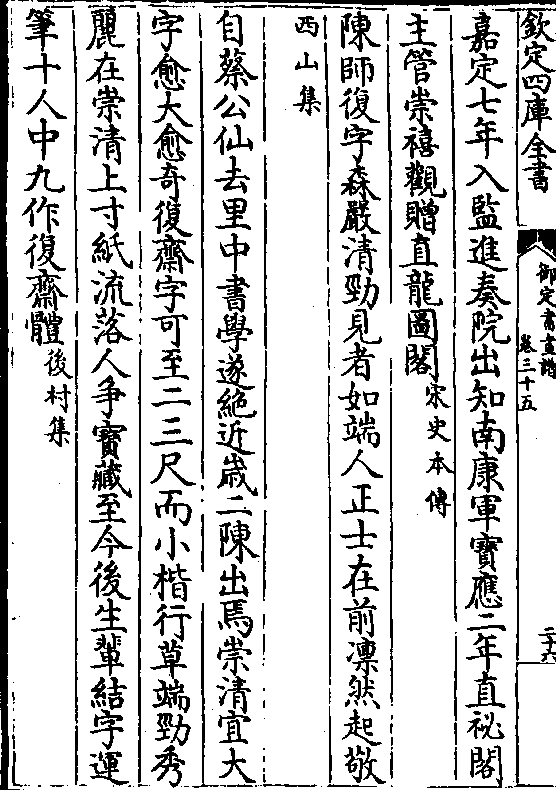 欽定四庫全書
御定書畫譜
卷三十五
二十六
嘉定七年入監進奏院出知南康軍寶應二年直祕閣
主管崇禧觀贈直龍圖閣宋史本傳
陳師復字森嚴清勁見者如端人正士在前凛然起敬
西山集
自蔡公仙去里中書學遂絕近歲二陳出焉崇清宜大
字愈大愈奇復齋字可至二三尺而小楷行草端勁秀
麗在崇清上寸紙流落人争寶藏至今後生輩結字運
筆十人中九作復齋體後村集